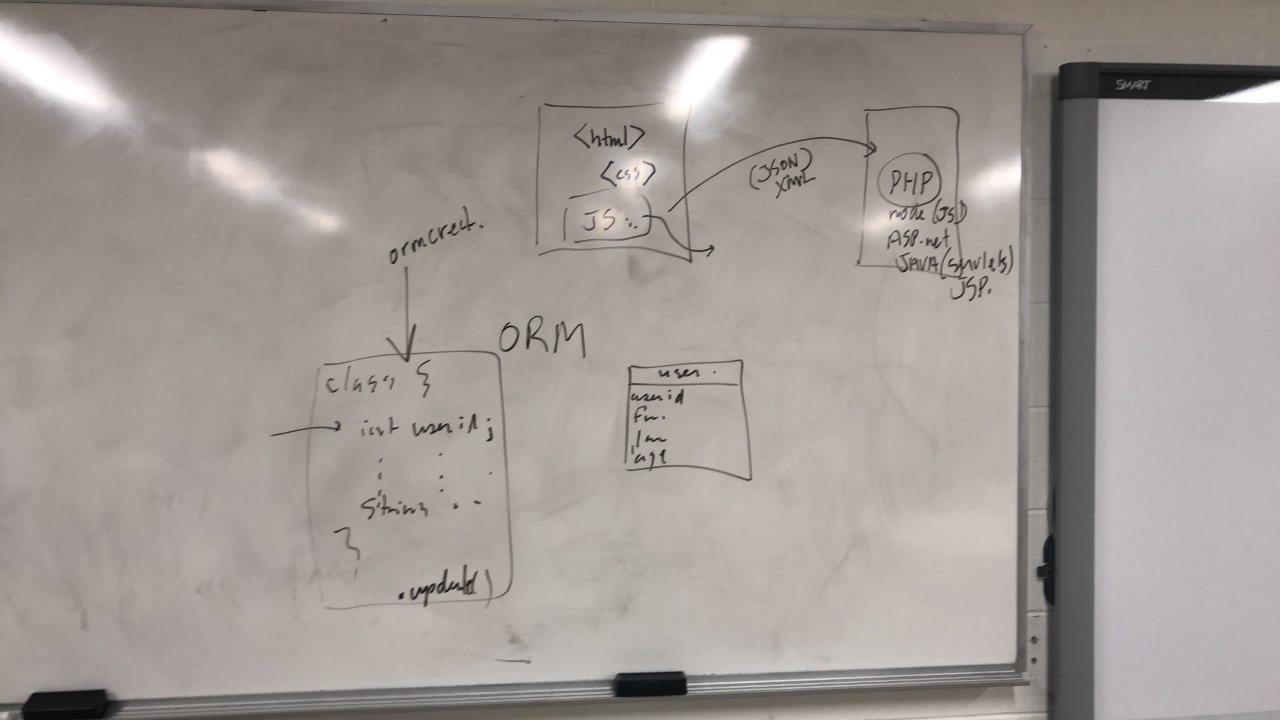 SMART
<html>
<css>
JS
(JSON)
XML
PHP
node (JS)
ASP.net
JAVA (servlets)
JSP.
ORM
class {
int userid;
String
}
.update()
user
userid
fn.
ln
age